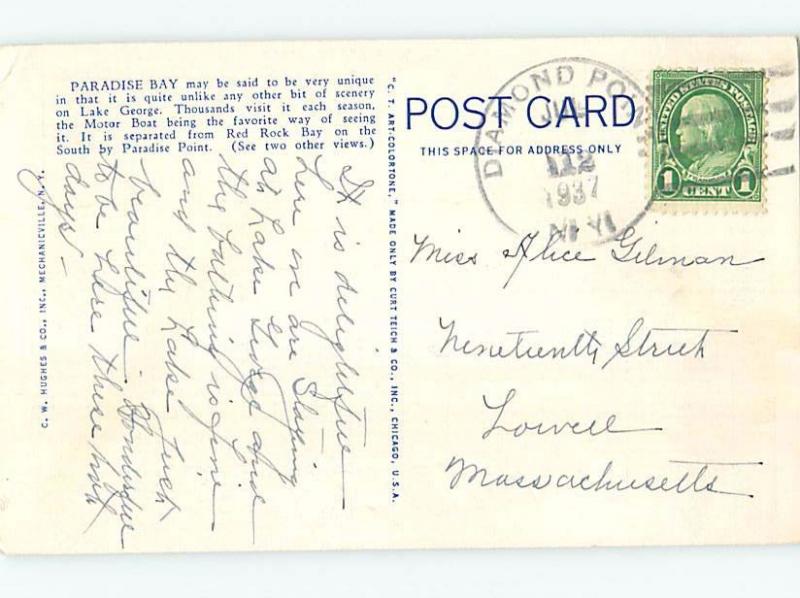 PARADISE BAY may be said to be very unique
in that it is quite unlike any other bit of scenery
on Lake George. Thousands visit it each season,
the Motor Boat being the favorite way of seeing
it. It is separated from Red Rock Bay on the
South by Paradise Point. (See two other views.)
It is delightful
here we are staying
at Lake George
the bathing is fine
and the Lake just
beautiful. Wonderful
to be here these hot
days –
C. W. HUGHES & CO., INC., MECHANICVILLE, N. Y.
"C. T. ART-COLORTONE," MADE ONLY BY CURT TEICH & CO., INC., CHICAGO, U.S.A.
POST CARD
THIS SPACE FOR ADDRESS ONLY
DIAMOND POINT
JUL
12
1937
N.Y.
UNITED STATES POSTAGE
1 CENT 1
Miss Alice Gilman
Nineteenth Street
Lowell
Massachusetts